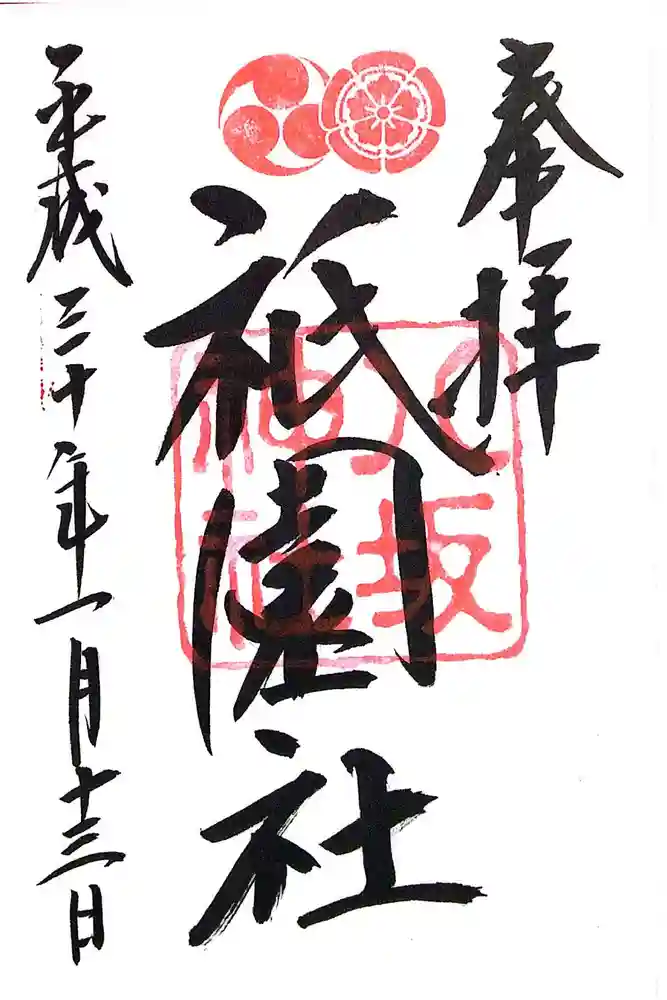 奉拝
祇園社
八坂
神社
平成三十年一月十三日